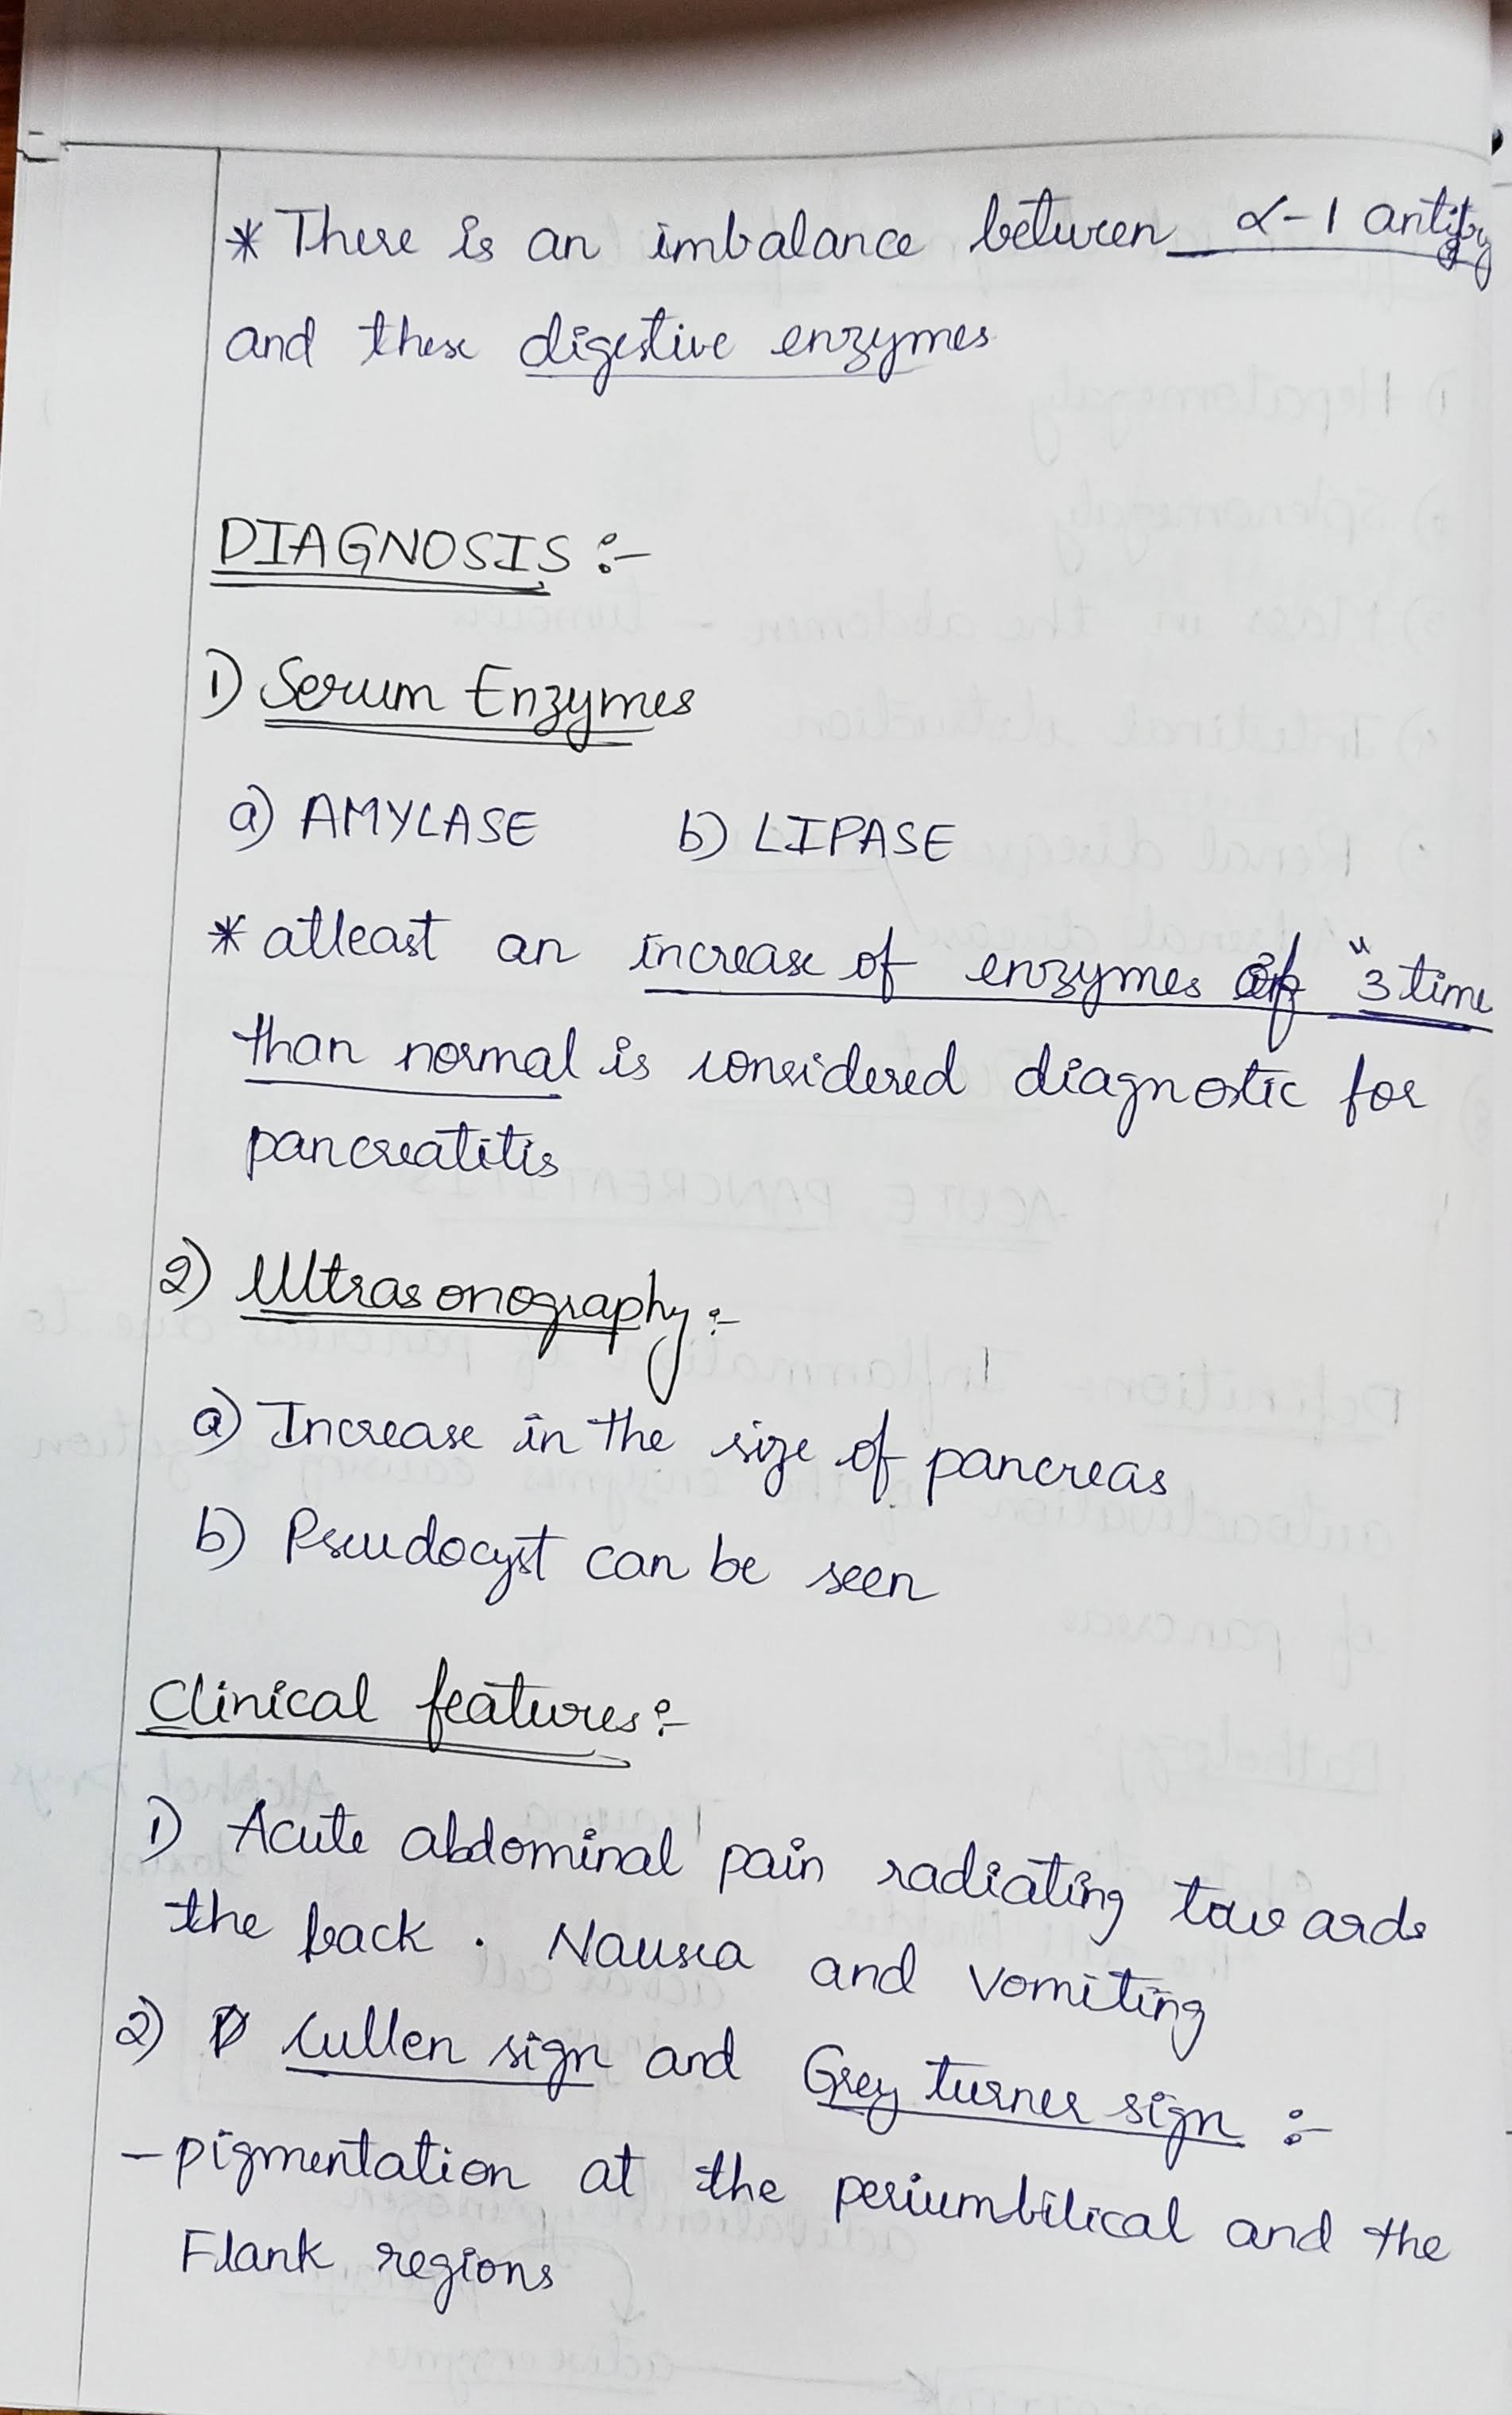 * There is an imbalance between α-1
and these digestive enzymes
DIAGNOSIS :-
1) Serum Enzymes
a) AMYLASE b) LIPASE
* atleast an increase of enzymes of "3 time
than normal is considered diagnostic for
pancreatitis
2) Ultrasonography :-
a) Increase in the size of pancreas
b) Pseudocyst can be seen
Clinical features :-
1) Acute abdominal pain radiating towards
the back . Nausea and vomiting
2) Cullen sign and Grey turner sign :-
- pigmentation at the periumbilical and the
Flank regions